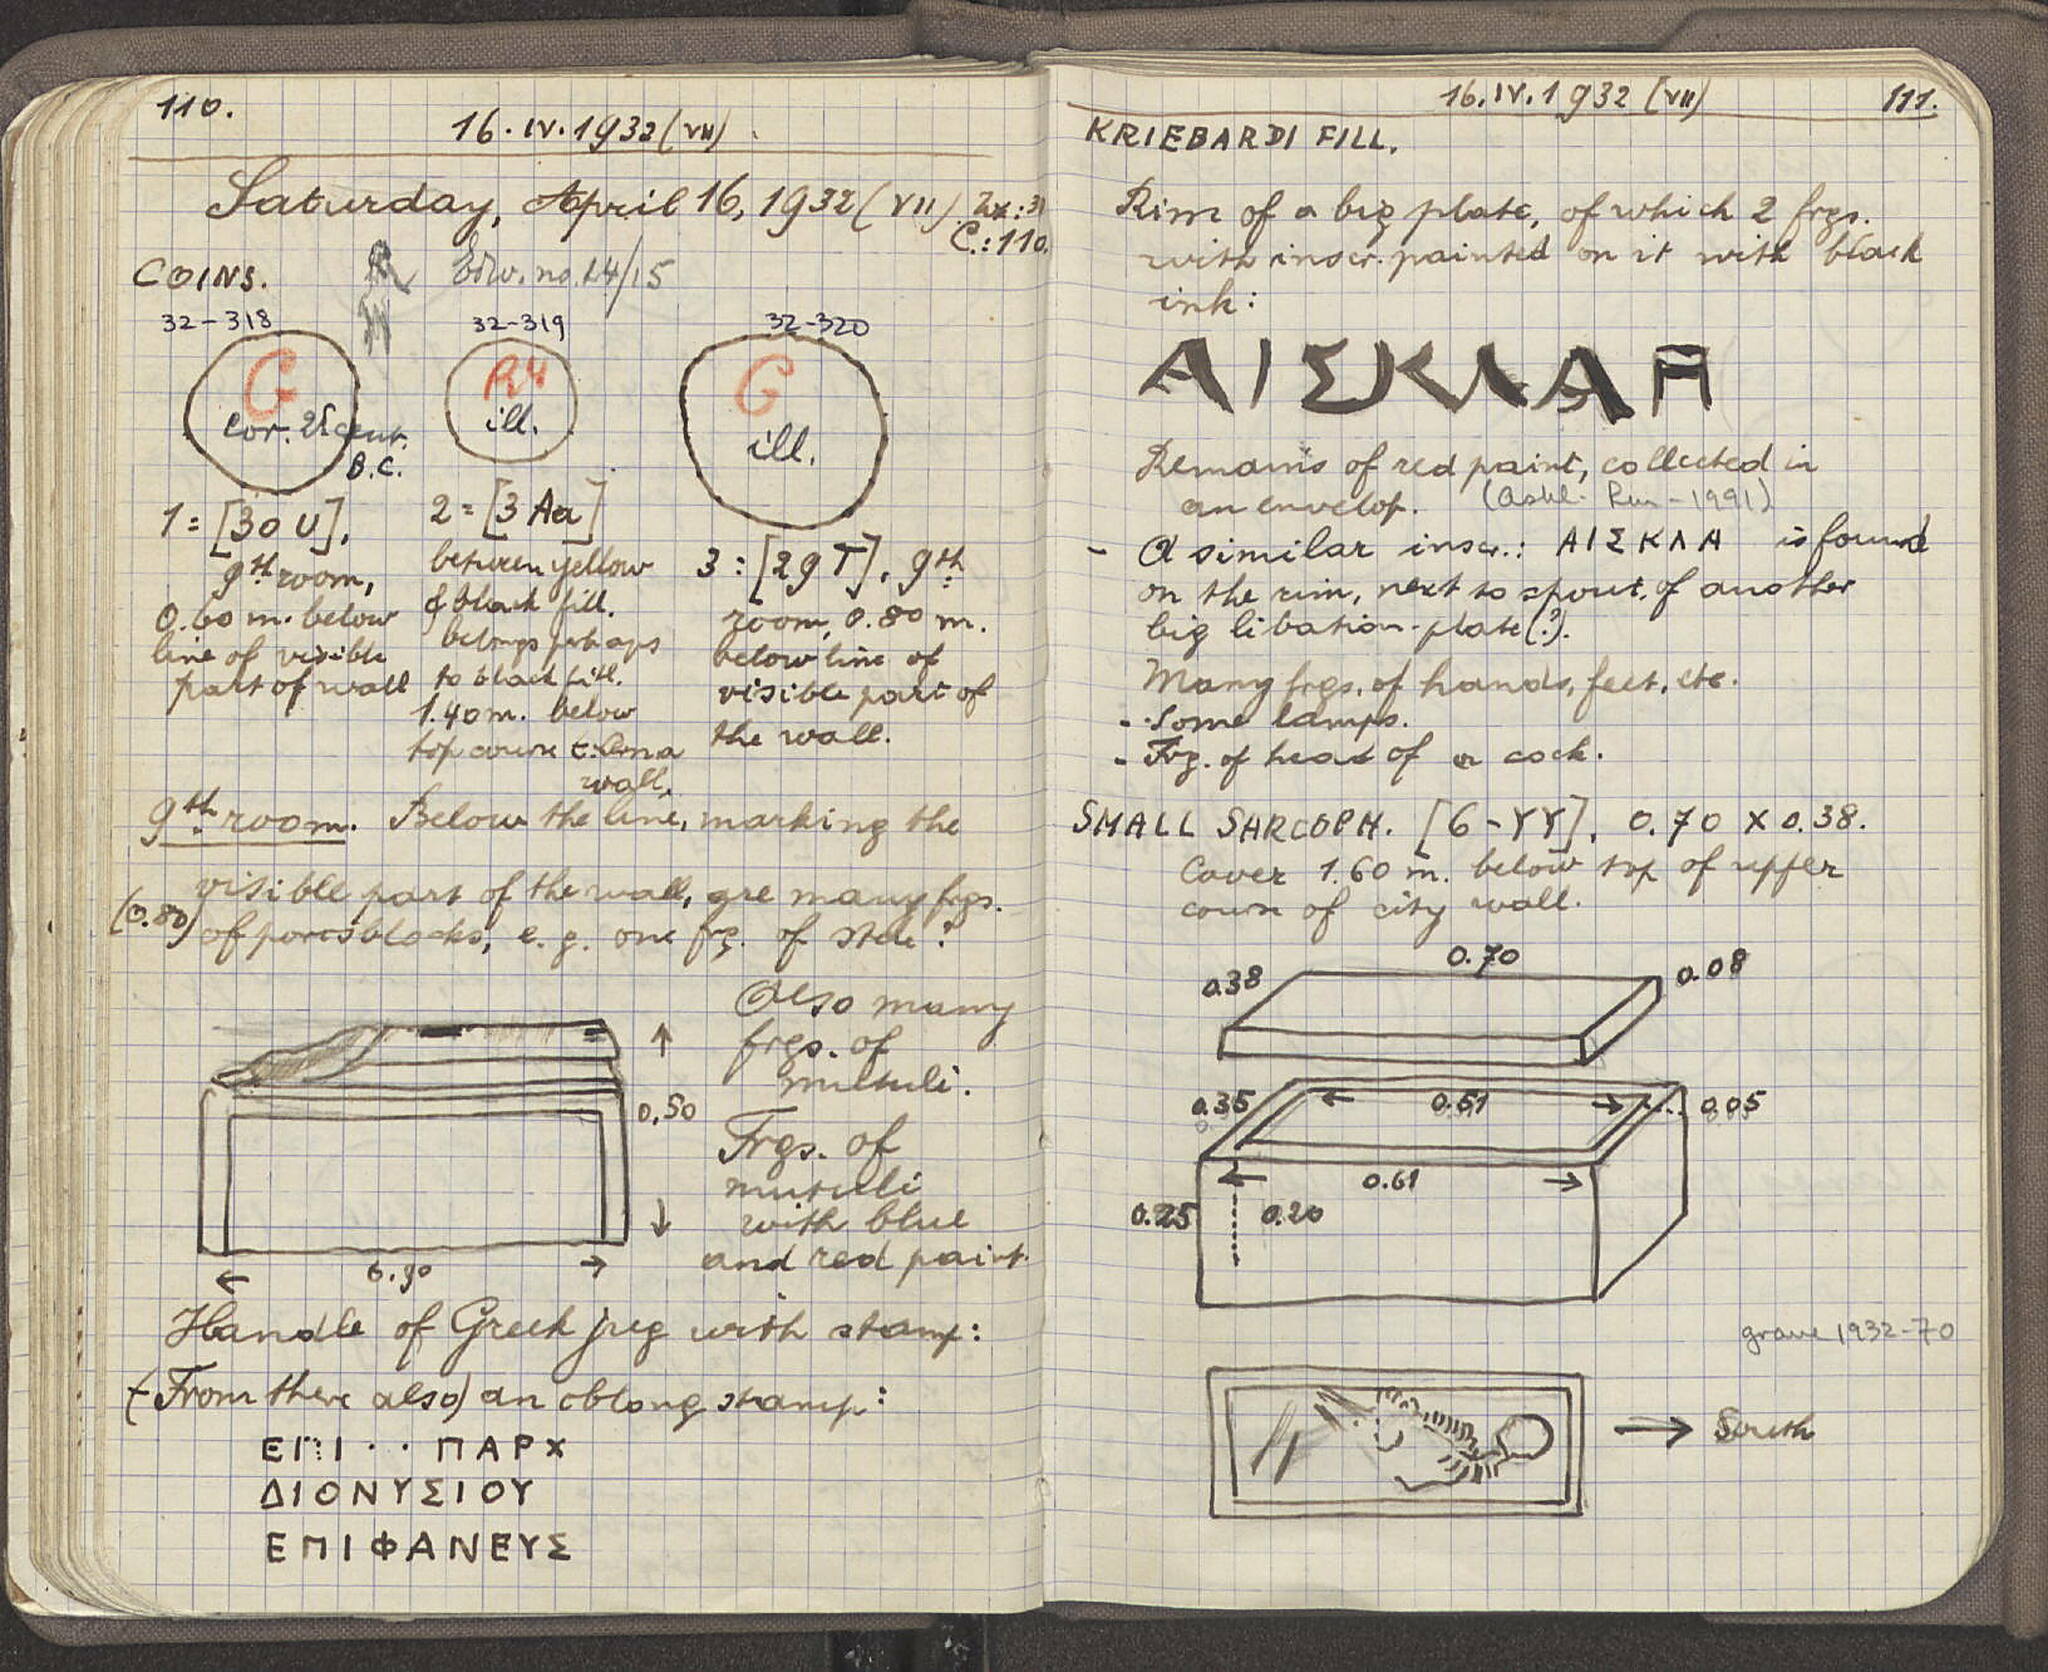 110.
16.IV.1932 (VII)
Saturday, April 16, 1932 (VII)
C.:110.
COINS.
Edw. no. 14/15
32-318
32-319
32-320
G
cor. cent.
B.C.
R4
ill.
G
ill.
1 = [30 U],
9th room,
0.60 m. below
line of visible
part of wall
2 = [3 Aa]
between yellow
& black fill.
belongs perhaps
to black fill.
1.40 m. below
top course
wall.
3 : [29 T], 9th
room, 0.80 m.
below line of
visible part of
the wall.
9th room. Below the line, marking the
visible part of the wall, are many frgs.
(0.80) of poros blocks, e.g. one frg. of stele?
Also many
frgs. of
mutuli.
0.50
Frgs. of
mutuli
with blue
and red paint.
Handle of Greek jug with stamp:
(From there also) an oblong stamp:
ΕΠΙ · · ΠΑΡΧ
ΔΙΟΝΥΣΙΟΥ
ΕΠΙΦΑΝΕΥΣ
16.IV.1932 (VII)
111.
KRIEBARDI FILL.
Rim of a big plate, of which 2 frgs.
with inscr. painted on it with black
ink:
ΑΙΣΚΛΑ
Remains of red paint, collected in
an envelop.
- A similar inscr.: ΑΙΣΚΛΑ is found
on the rim, next to spout, of another
big libation-plate (?).
Many frgs. of hands, feet, etc.
- Some lamps.
- Frg. of head of a cock.
SMALL SARCOPH. [6-YY], 0.70 X 0.38.
Cover 1.60 m. below top of upper
course of city wall.
0.70
0.38
0.08
0.35
0.51
0.05
0.61
0.25
0.20
grave 1932-70
South